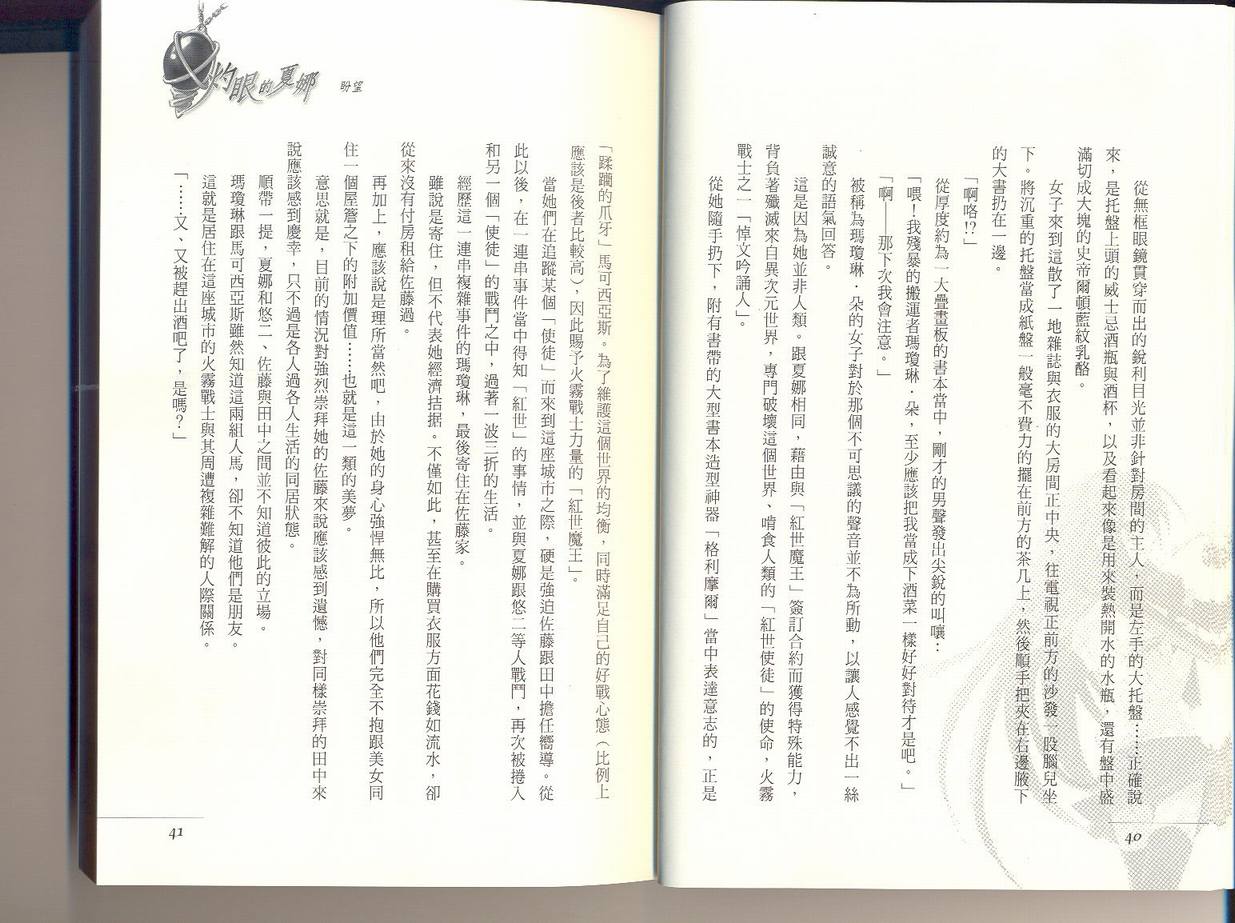 從無框眼鏡貫穿而出的銳利目光並非針對房間的主人，而是左手的大托盤……正確說
來，是托盤上頭的威士忌酒瓶與酒杯，以及看起來像是用來裝熱開水的水瓶，還有盤中盛
滿切成大塊的史帝爾頓藍紋乳酪。
女子來到這散了一地雜誌與衣服的大房間正中央，往電視正前方的沙發一股腦兒坐
下。將沉重的托盤當成紙盤一般毫不費力的擺在前方的茶几上，然後順手把夾在右邊腋下
的大書扔在一邊。
「啊咯!?」
從厚度約為一大疊畫板的書本當中，剛才的男聲發出尖銳的叫嚷：
「喂！我殘暴的搬運者瑪瓊琳．朵，至少應該把我當成下酒菜一樣好好對待才是吧。」
「啊——那下次我會注意。」
被稱為瑪瓊琳．朵的女子對於那個不可思議的聲音並不為所動，以讓人感覺不出一絲
誠意的語氣回答。
這是因為她並非人類。跟夏娜相同，藉由與「紅世魔王」簽訂合約而獲得特殊能力，
背負著殲滅來自異次元世界，專門破壞這個世界、啃食人類的「紅世使徒」的使命，火霧
戰士之一「悼文吟誦人」。
從她隨手扔下，附有書帶的大型書本造型神器「格利摩爾」當中表達意志的，正是
40
灼眼的夏娜 盼望
「蹂躪的爪牙」馬可西亞斯。為了維護這個世界的均衡，同時滿足自己的好戰心態（比例上
應該是後者比較高），因此賜予火霧戰士力量的「紅世魔王」。
當她們在追蹤某個「使徒」而來到這座城市之際，硬是強迫佐藤跟田中擔任嚮導。從
此以後，在一連串事件當中得知「紅世」的事情，並與夏娜跟悠二等人戰鬥，再次被捲入
和另一個「使徒」的戰鬥之中，過著一波三折的生活。
經歷這一連串複雜事件的瑪瓊琳，最後寄住在佐藤家。
雖說是寄住，但不代表她經濟拮据。不僅如此，甚至在購買衣服方面花錢如流水，卻
從來沒有付房租給佐藤過。
再加上，應該說是理所當然吧，由於她的身心強悍無比，所以他們完全不抱跟美女同
住一個屋簷之下的附加價值……也就是這一類的美夢。
意思就是，目前的情況對強烈崇拜她的佐藤來說應該感到遺憾，對同樣崇拜的田中來
說應該感到慶幸，只不過是各人過各人生活的同居狀態。
順帶一提，夏娜和悠二、佐藤與田中之間並不知道彼此的立場。
瑪瓊琳跟馬可西亞斯雖然知道這兩組人馬，卻不知道他們是朋友。
這就是居住在這座城市的火霧戰士與其周遭複雜難解的人際關係。
「……又、又被趕出酒吧了，是嗎？」
41